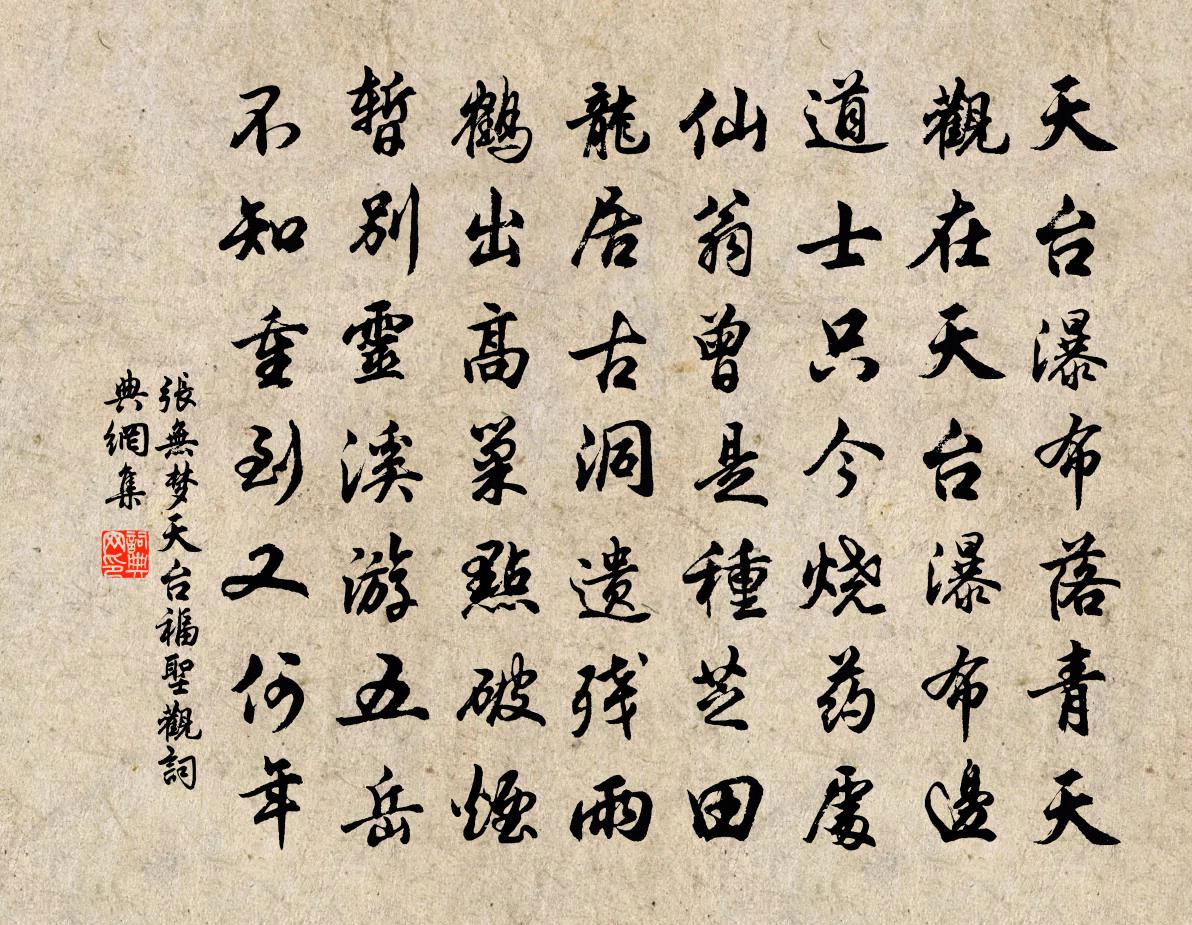 天台瀑布落青天
觀在天台瀑布邊
道士只今烧药處
仙翁曾是種芝田
龍居古洞遗残雨
鶴出高巢點破煙
暫別靈溪游五岳
不知重到又何年
張無梦天台福聖觀詞
典網集
詞典
网印